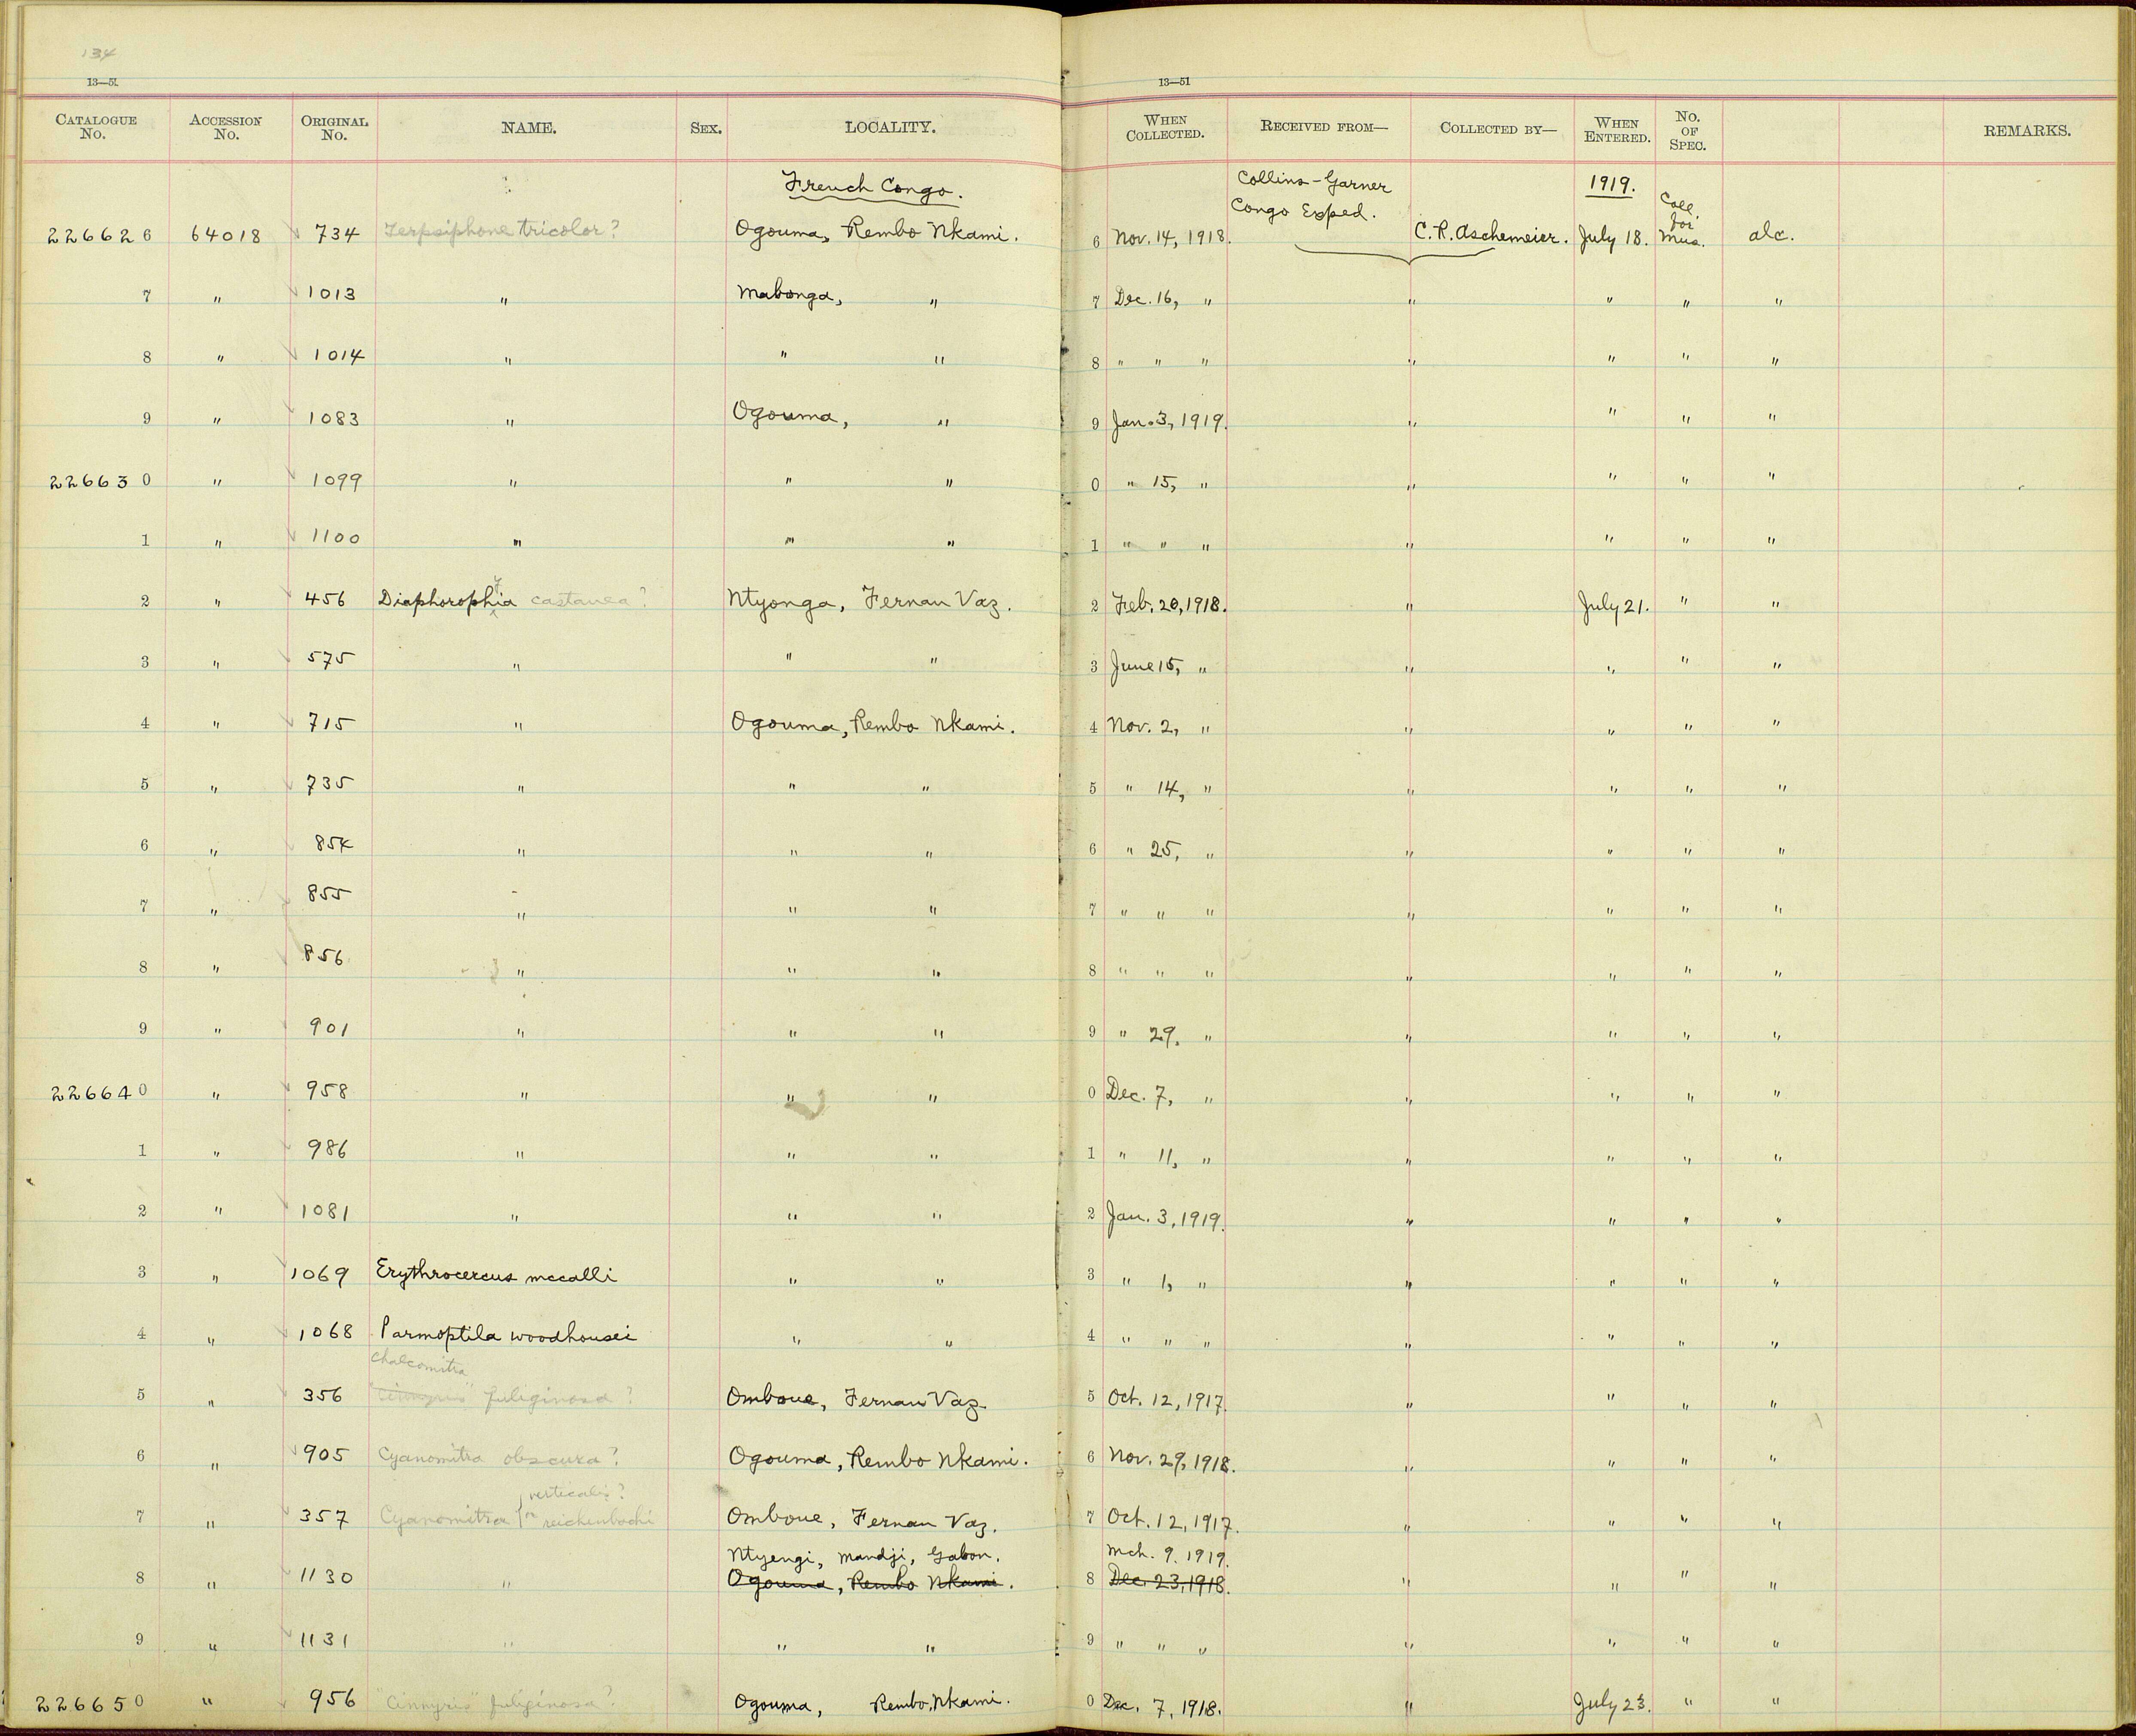 134
13—51 13—51
CATALOGUE No. ACCESSION No. ORIGINAL No. NAME. SEX. LOCALITY. WHEN COLLECTED. RECEIVED FROM— COLLECTED BY— WHEN ENTERED. No. OF SPEC. REMARKS.
French Congo. Collins-Garner Congo Exped. 1919.
226626 64018 734 Terpsiphone tricolor? Ogouma, Rembo Nkami. 6 Nov. 14, 1918. C. R. Aschemeier. July 18. Coll. for Mus. alc.
7 " 1013 " Mabonga, " 7 Dec. 16, " " " " "
8 " 1014 " " " 8 " " " " " " "
9 " 1083 " Ogouma, " 9 Jan. 3, 1919. " " " "
226630 " 1099 " " " 0 " 15, " " " " "
1 " 1100 " " " 1 " " " " " " "
2 " 456 Diaphorophyia castanea? Ntyonga, Fernan Vaz. 2 Feb. 20, 1918. " July 21. " "
3 " 575 " " " 3 June 15, " " " " "
4 " 715 " Ogouma, Rembo Nkami. 4 Nov. 2, " " " " "
5 " 735 " " " 5 " 14, " " " " "
6 " 854 " " " 6 " 25, " " " " "
7 " 855 " " " 7 " " " " " " "
8 " 856 " " " 8 " " " " " " "
9 " 901 " " " 9 " 29, " " " " "
226640 " 958 " " " 0 Dec. 7, " " " " "
1 " 986 " " " 1 " 11, " " " " "
2 " 1081 " " " 2 Jan. 3, 1919. " " " "
3 " 1069 Erythrocercus mccalli " " 3 " 1, " " " " "
4 " 1068 Parmoptila woodhousei " " 4 " " " " " " "
Chalcomitra
5 " 356 "Cinnyris" fuliginosa? Omboue, Fernan Vaz. 5 Oct. 12, 1917. " " " "
6 " 905 Cyanomitra obscura? Ogouma, Rembo Nkami. 6 Nov. 29, 1918. " " " "
verticalis?
7 " 357 Cyanomitra or reichenbachi Omboue, Fernan Vaz. 7 Oct. 12, 1917. " " " "
Ntyengi, Mandji, Gabon. Mch. 9, 1919.
8 " 1130 " Ogouma, Rembo Nkami. 8 Dec. 23, 1918. " " " "
9 " 1131 " " " 9 " " " " " " "
226650 " 956 "Cinnyris" fuliginosa? Ogouma, Rembo Nkami. 0 Dec. 7, 1918. " July 23. " "